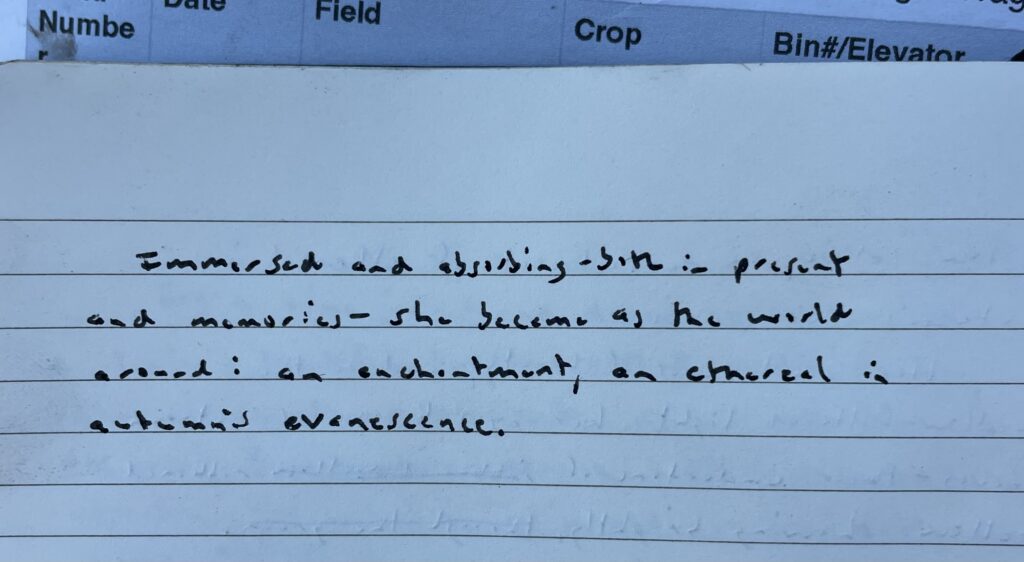 Numbe Date Field Crop Bin#/Elevator
r
Immersed and absorbing - both in present
and memories - she became as the world
around: an enchantment, an ethereal in
autumn's evanescence.